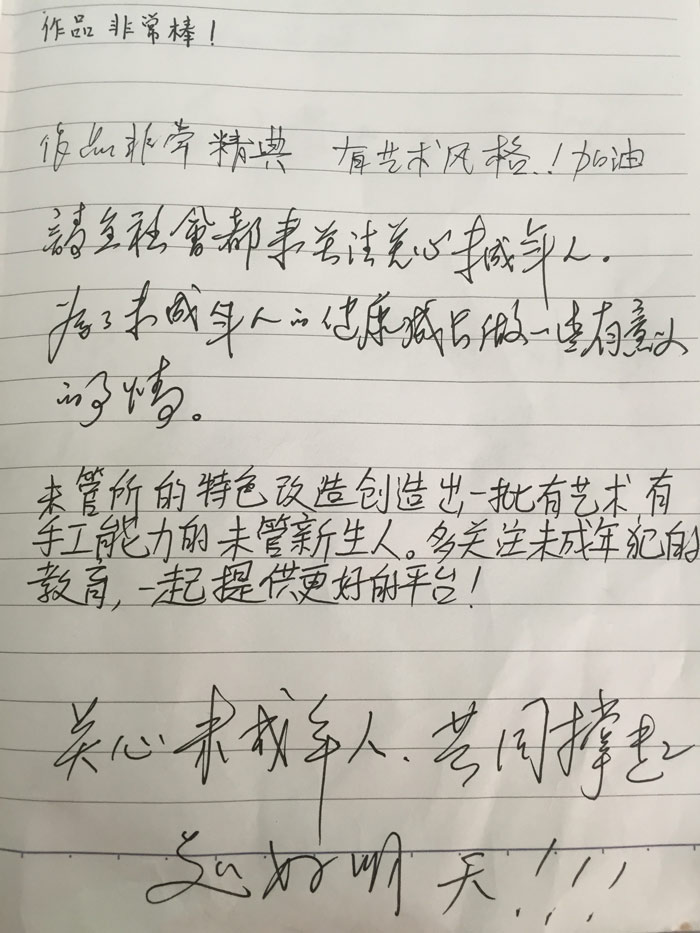 作品非常棒！
作品非常精典 有艺术风格！加油
請全社會都来关注关心未成年人。
为了未成年人的健康成长做一些有意义
的事情。
未管所的特色改造创造出一批有艺术,有
手工能力的未管新生人。多关注未成年犯的
教育,一起提供更好的平台！
关心未成年人.共同撑起
美好明天！！！